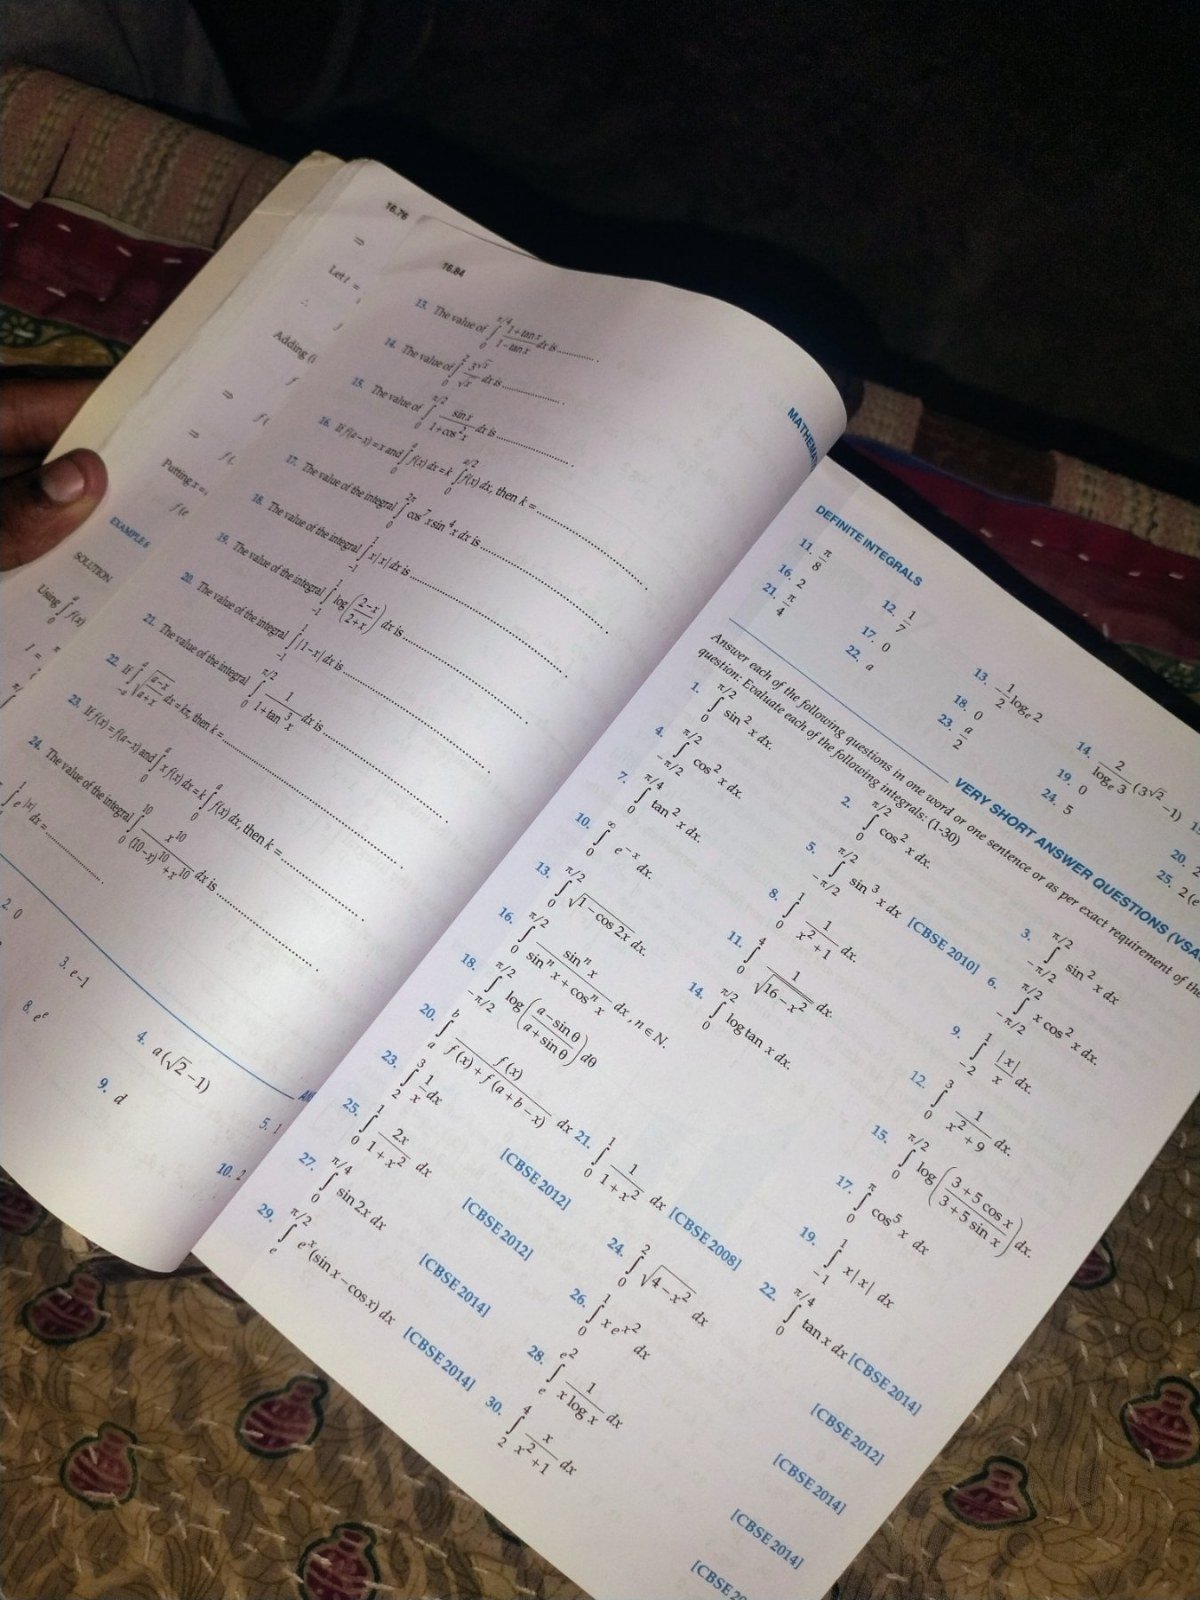 16.76
⇒
Let I =
∴
Adding (i
⇒ f
⇒ f (
f (
Putting x =
f (e
EXAMPLE 6
SOLUTION
Using ∫₀ᵃ f(x)
I =
16.84
13. The value of ∫₀^{π/4} (1+tan x)/(1−tan x) dx is ..............
14. The value of ∫₀² 3^{√x}/√x dx is ..............
15. The value of ∫₀^{π/2} sin x/(1+cos² x) dx is ..............
16. If f(a−x) = x and ∫₀ᵃ f(x) dx = k ∫₀^{a/2} f(x) dx, then k = ..............
17. The value of the integral ∫₀^{2π} cos⁷ x sin⁴ x dx is ..............
18. The value of the integral ∫₋₁¹ x|x| dx is ..............
19. The value of the integral ∫₋₁¹ log((2−x)/(2+x)) dx is ..............
20. The value of the integral ∫₋₁¹ |1−x| dx is ..............
21. The value of the integral ∫₀^{π/2} 1/(1+tan³ x) dx is ..............
22. If ∫₋ₐᵃ √((a−x)/(a+x)) dx = kπ, then k = ..............
23. If f(x) = f(a−x) and ∫₀ᵃ x f(x) dx = k ∫₀ᵃ f(x) dx, then k = ..............
24. The value of the integral ∫₀¹⁰ x¹⁰/((10−x)¹⁰ + x¹⁰) dx is ..............
∫ e^{|x|} dx = ..............
2. 0
3. e−1
4. a(√2 −1)
5. 1
8. eᵉ
9. d
10. 2
MATHEMA
DEFINITE INTEGRALS
11. π/8 12. 1/7 13. 1/2 logₑ 2 14. 2/logₑ 3 (3^{√2} −1)
16. 2 17. 0 18. 0 19. 0 20. 2
21. π/4 22. a 23. a/2 24. 5 25. 2(e
VERY SHORT ANSWER QUESTIONS (VSA
Answer each of the following questions in one word or one sentence or as per exact requirement of the
question: Evaluate each of the following integrals: (1-30)
1. ∫₀^{π/2} sin² x dx. 2. ∫₀^{π/2} cos² x dx. 3. ∫_{−π/2}^{π/2} sin² x dx
4. ∫_{−π/2}^{π/2} cos² x dx. 5. ∫_{−π/2}^{π/2} sin³ x dx [CBSE 2010] 6. ∫_{−π/2}^{π/2} x cos² x dx.
7. ∫₀^{π/4} tan² x dx. 8. ∫₀¹ 1/(x²+1) dx. 9. ∫₋₂¹ |x|/x dx.
10. ∫₀^∞ e^{−x} dx. 11. ∫₀⁴ 1/√(16−x²) dx. 12. ∫₀³ 1/(x²+9) dx.
13. ∫₀^{π/2} √(1−cos 2x) dx. 14. ∫₀^{π/2} log tan x dx. 15. ∫₀^{π/2} log((3+5 cos x)/(3+5 sin x)) dx.
16. ∫₀^{π/2} sinⁿ x/(sinⁿ x + cosⁿ x) dx, n ∈ N. 17. ∫₀^π cos⁵ x dx
18. ∫_{−π/2}^{π/2} log((a−sin θ)/(a+sin θ)) dθ 19. ∫₋₁¹ x|x| dx
20. ∫ₐᵇ f(x)/(f(x)+f(a+b−x)) dx 21. ∫₀¹ 1/(1+x²) dx [CBSE 2008] 22. ∫₀^{π/4} tan x dx [CBSE 2014]
23. ∫₂³ 1/x dx [CBSE 2012] 24. ∫₀² √(4−x²) dx [CBSE 2012]
25. ∫₀¹ 2x/(1+x²) dx [CBSE 2012] 26. ∫₀¹ x e^{x²} dx [CBSE 2014]
27. ∫₀^{π/4} sin 2x dx [CBSE 2014] 28. ∫ₑ^{e²} 1/(x log x) dx [CBSE 2014]
29. ∫ₑ^{π/2} eˣ (sin x − cos x) dx [CBSE 2014] 30. ∫₂⁴ x/(x²+1) dx [CBSE 20